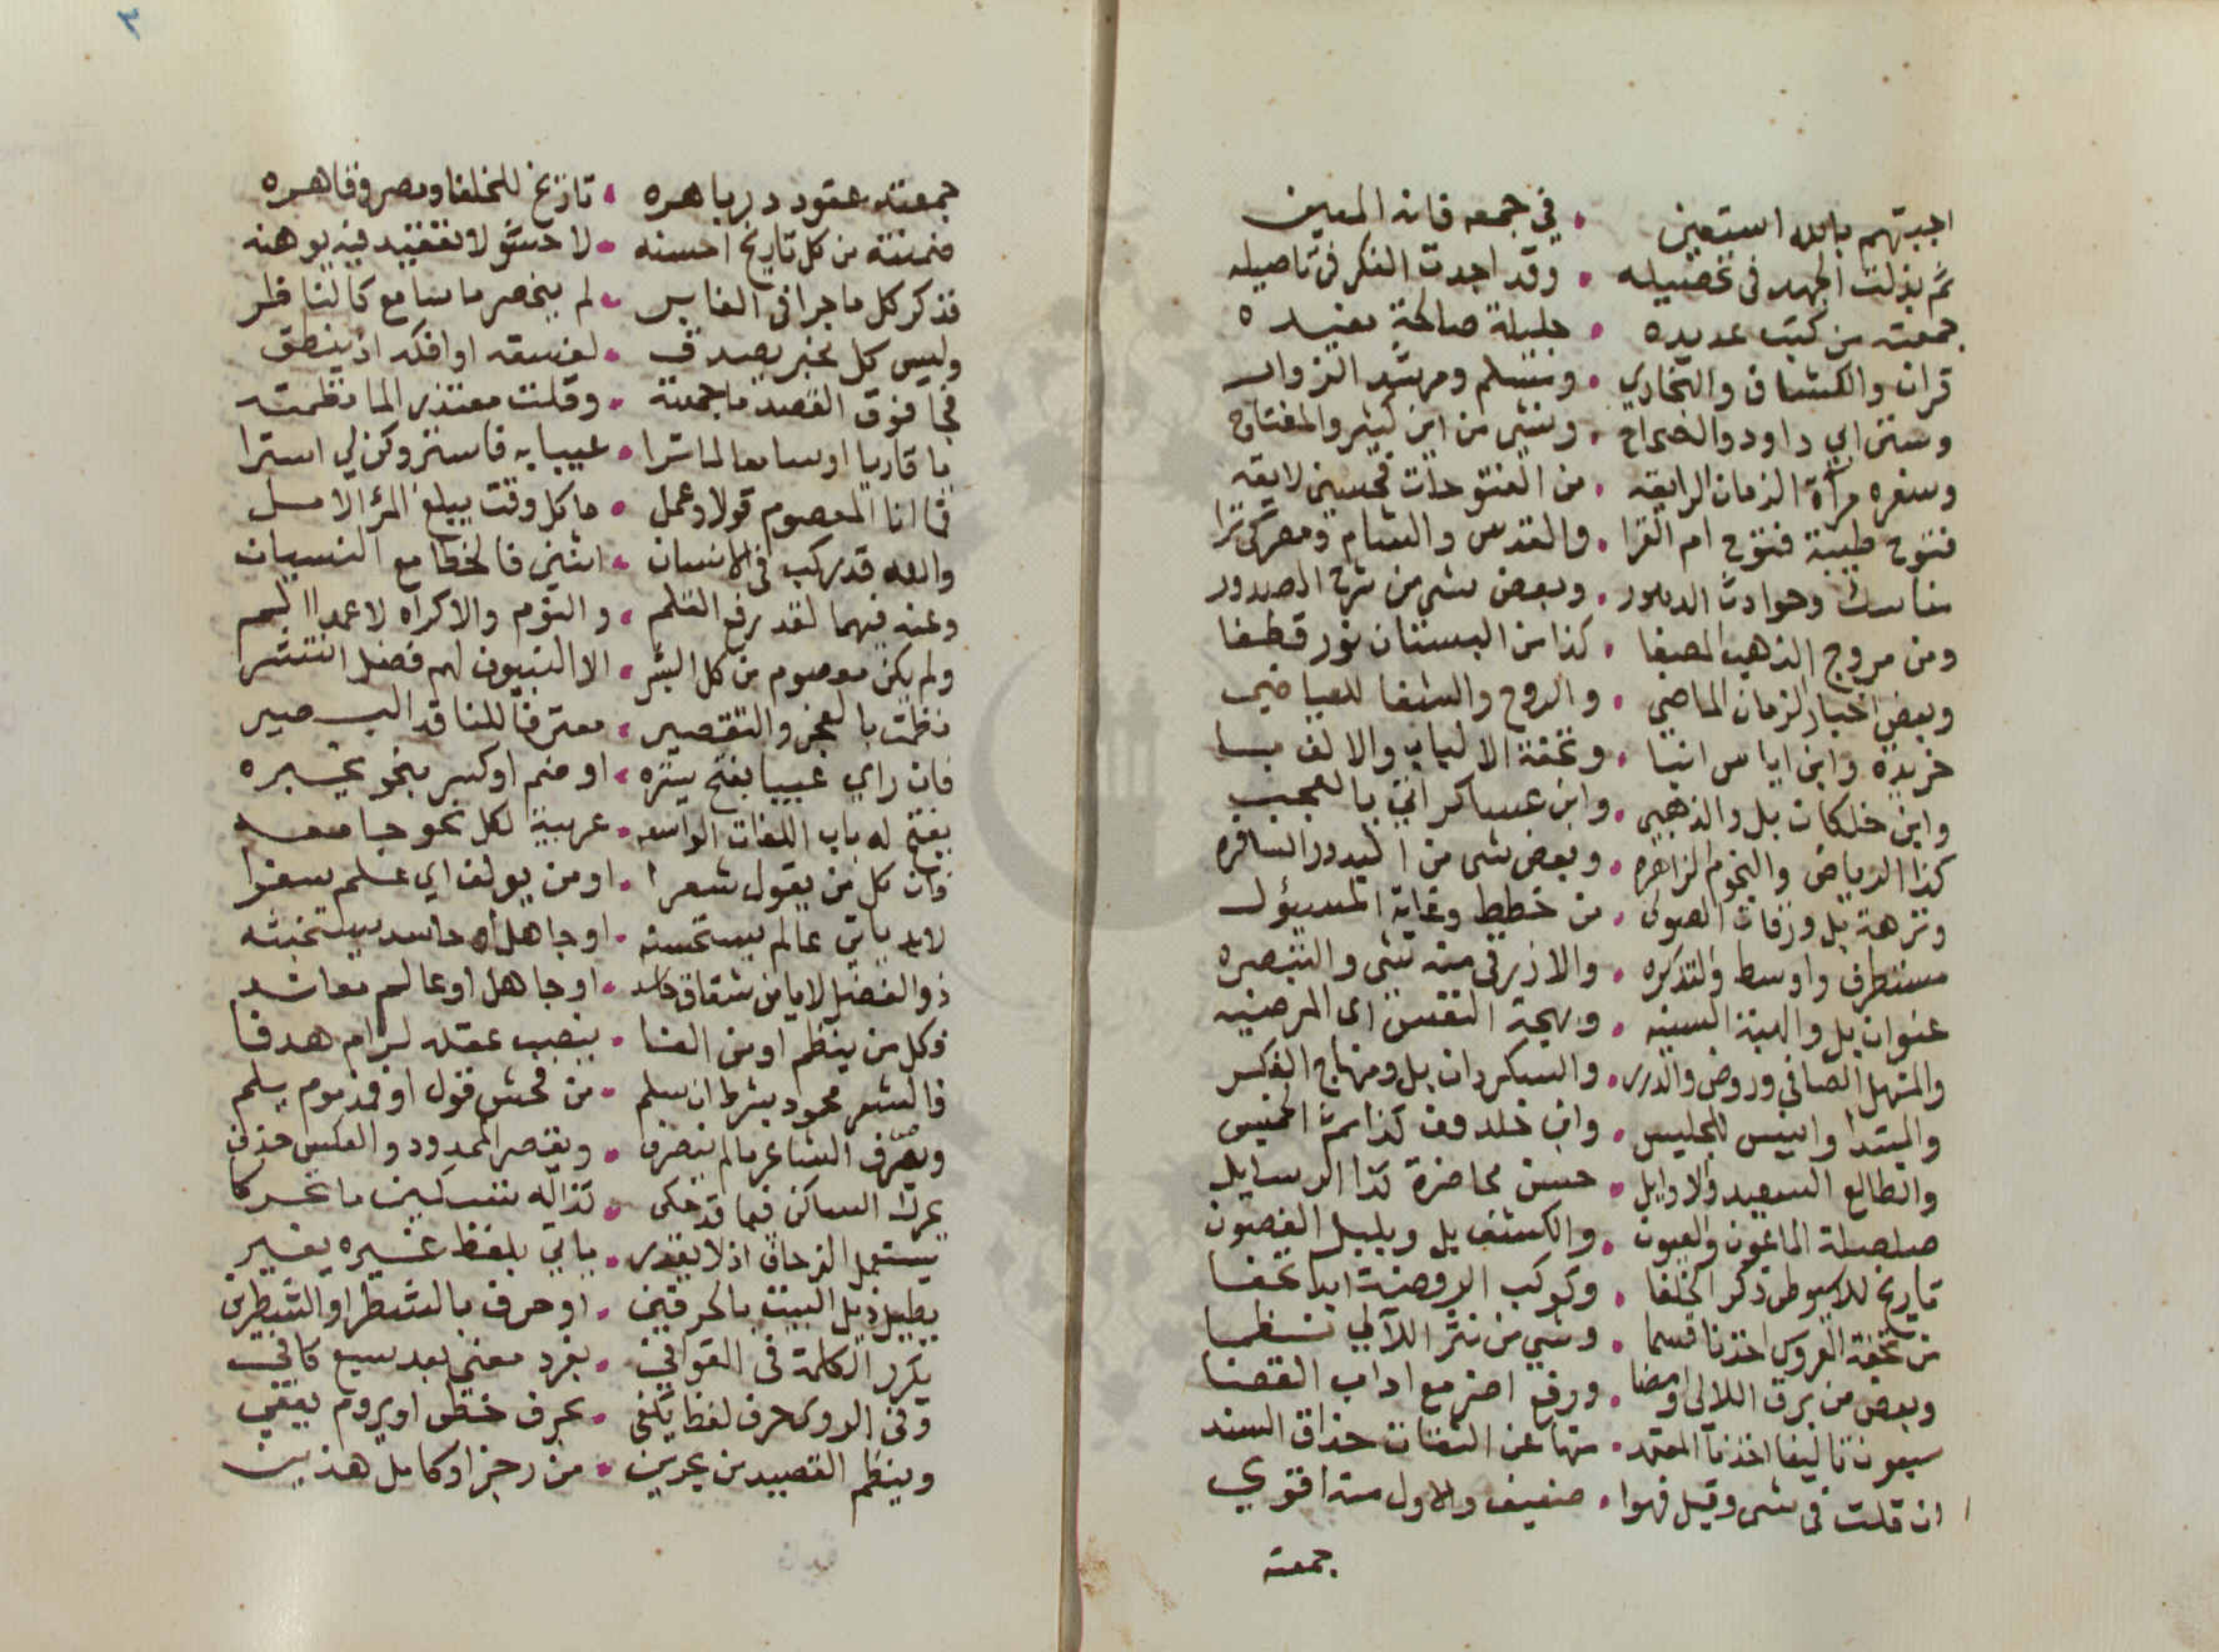 اجبتهم بالله استعين • في جمعه فانه المعين
ثم بذلت الجهد في تحصيله • وقد اجدت الفكر في تاصيله
جمعته من كتب عديده • جليلة صالحة مفيده
قران والكشاف والبخاري • ومسلم ومرشد الزوار
وسنن ابي داود والصحاح • وشي من ابن كثير والمفتاح
وسفره مرآة الزمان الرايقه • من الفتوحات فحسين لايقه
فتوح طيبة فتوح ام القرا • والقدس والشام ومصر كي ترا
مناسك وحوادث الدهور • وبعض شي من شرح الصدور
ومن مروج الذهب المصفا • كذا من البستان نور قطفا
وبعض اخبار الزمان الماضي • والروح والشفا للعياضي
خريدة وابن اياس انبا • وتحفة الالباب والالف با
وابن خلكان بل والذهبي • وابن عساكر اتي بالعجب
كذا الرياض والنجوم الزاهره • وبعض شي من البدور السافره
ونزهة بل ورقات العيون • من خطط وغاية المسؤل
مستطرف واوسط والتذكره • والازرقي منه شي والتبصره
عنوان بل والهيئة السنيه • وبهجة النفس اي المرضيه
والمنهل الصافي وروض والدرر • والسكردان بل ومنهاج الفكر
والمبتدا وانيس للجليس • وابن خلدون كذا ثم الخميس
والطالع السعيد والاوايل • حسن محاضرة كذا الرسايل
صلصلة الماعون والعيون • والكشف بل وبلبل الغصون
تاريخ للاسيوطي ذكر الخلفا • وكوكب الروضة ايدا تحفا
من تحفة العروس اخذنا قسما • وشي من نثر اللآلي نظما
وبعض من برق اللالي ومضا • ورفع اصر مع اداب القضا
سبعون تاليفا اخذنا المعتمد • منها عن الثقات حذاق السند
ان قلت في شي وقيل فهوا • ضعيف والاول منه اقوي
جمعته
٣
جمعته عقود در باهره • تاريخ للخلفا ومصر وقاهره
ضمنته من كل تاريخ احسنه • لا حشو لا تعقيد فيه يوهنه
فذكر كل ما جرا في الغابر • لم ينحصر ما سامع كالناظر
وليس كل مخبر يصدق • لفسقه او افكه اذ ينطق
فجا فوق القصد ما جمعته • وقلت معتذرا لما نظمته
يا قاريا او سامعا لما ترا • عيبا به فاستر وكن لي استرا
فما انا المعصوم قولا وعمل • ما كل وقت يبلغ المرؤ الامل
والله قد ركب في الانسان • اثنين فالخطا مع النسيان
وعنه فيهما لقد رفع القلم • والنوم والاكراه لا عمدا الم
ولم يكن معصوم من كل البشر • الا النبيون لهم فضل انتشر
نظمت بالعجز والتقصير • معترفا للناقد البصير
فان راي عيبا بفتح يستره • او ضم او كسر بنحو يجبره
يفتح له باب اللغات الواسعه • عربية لكل نحو جامعه
فان كل من يقول شعرا • او من يولف اي علم سفرا
لابد ياتي عالم يستحسنه • او جاهل او حاسد يستخبثه
ذو الفضل لا يامن شقاق حاسد • او جاهل او عالم معاند
فكل من ينظم او من الفا • ينصب عقله لرام هدفا
فالشعر محمود بشرط ان سلم • من فحش قول او فمذموم يسلم
ويصرف الشاعر ما لم ينصرف • ويقصر الممدود والعكس حذف
يحرك الساكن فيما قد حكي • كذا له تسكين ما تحركا
يستعمل الزحاف اذ لا يقدر • ياتي بلفظ غيره يغير
يطيل ذيل البيت بالحرفين • او حرف بالشطر او الشطرين
يكرر الكلمة في القوافي • بفرد معني بعد سبع كافي
وفي الروي حرف لفظ يكفي • بحرف خط او يروم يقفي
وينظم القصيد من بحرين • من رجز او كامل هذين